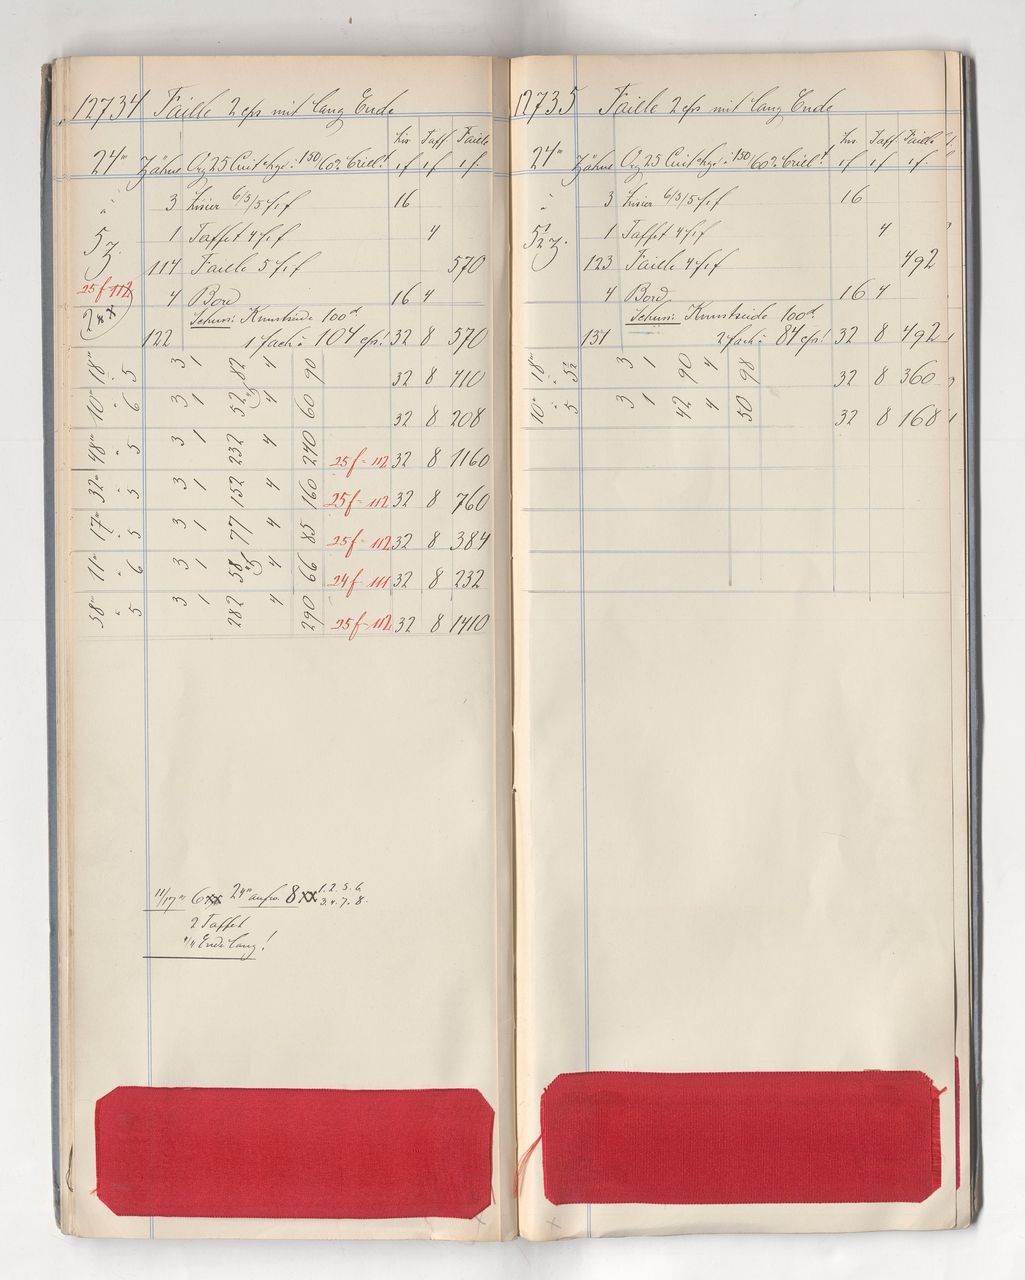 12734 Faille 2 eps mit lang Ende
Lis. Taff. Faille
24''' Zähne Org 25 Cuit 150/60
1f 1f 1f.
à 3 Lisier 6/3/5 f 1f 16
5 Z. 1 Taffet 4 f 1f 4
114 Faille 5 f 1f 570
25 f 112
4 Bord 16 4
2 xx
Schuss: Kunstseide 100d
122 1 fach = 104 eps! 32 8 570
18''' à 5 3 1 82 4 90 32 8 410
10''' à 6 3 1 52 4 60 32 8 208
48''' à 5 3 1 232 4 240 25 f = 112 32 8 1160
32''' à 5 3 1 152 4 160 25 f = 112 32 8 760
17''' à 5 3 1 77 4 85 25 f = 112 32 8 384
11''' à 6 3 1 58 4 66 24 f 111 32 8 232
58''' à 5 3 1 282 4 290 25 f = 112 32 8 1410
11/17''' 6 xx 24''' aufw. 8 xx 1. 2. 5. 6.
3. 4. 7. 8.
2 Taffet
1/4 Ende lang!
12735 Faille 2 eps mit lang Ende
Lis. Taff. Faille
24''' Zähne Org 25 Cuit 150/60
1f 1f 1f.
à 3 Lisier 6/3/5 f 1f 16
5 1/2 Z. 1 Taffet 4 f 1f 4
123 Faille 4 f 1f 492
4 Bord 16 4
Schuss: Kunstseide 100d.
131 2 fach = 84 eps! 32 8 492
18''' à 5 1/2 3 1 90 4 98 32 8 360
10''' à 5 3 1 42 4 50 32 8 168